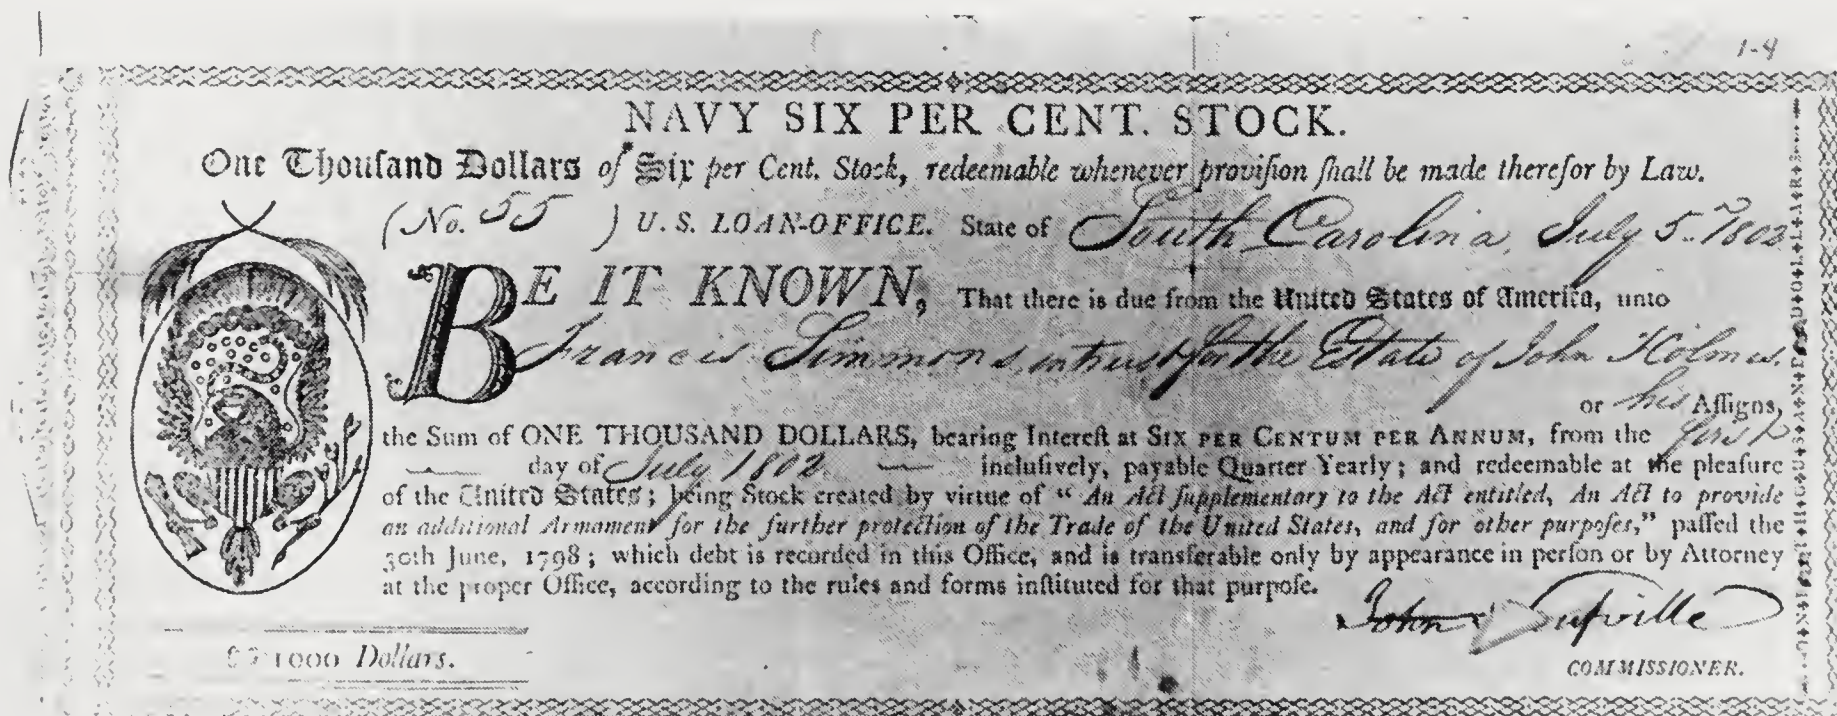 1-4
NAVY SIX PER CENT. STOCK.
One Thouſand Dollars of Six per Cent. Stock, redeemable whenever proviſion ſhall be made therefor by Law.
(No. 55) U. S. LOAN-OFFICE. State of South Carolina, July 5. 1802
BE IT KNOWN, That there is due from the United States of America, unto
Francis Simmons, in trust for the Estate of John Holmes.
or his Aſſigns,
the Sum of ONE THOUSAND DOLLARS, bearing Intereſt at SIX PER CENTUM PER ANNUM, from the first
day of July 1802 incluſively, payable Quarter Yearly; and redeemable at the pleaſure
of the United States; being Stock created by virtue of “ An Act ſupplementary to the Act entitled, An Act to provide
an additional Armament for the further protection of the Trade of the United States, and for other purpoſes,” paſſed the
30th June, 1798; which debt is recorded in this Office, and is transferable only by appearance in perſon or by Attorney
at the proper Office, according to the rules and forms inſtituted for that purpoſe.
John Neufville
1000 Dollars.
COMMISSIONER.